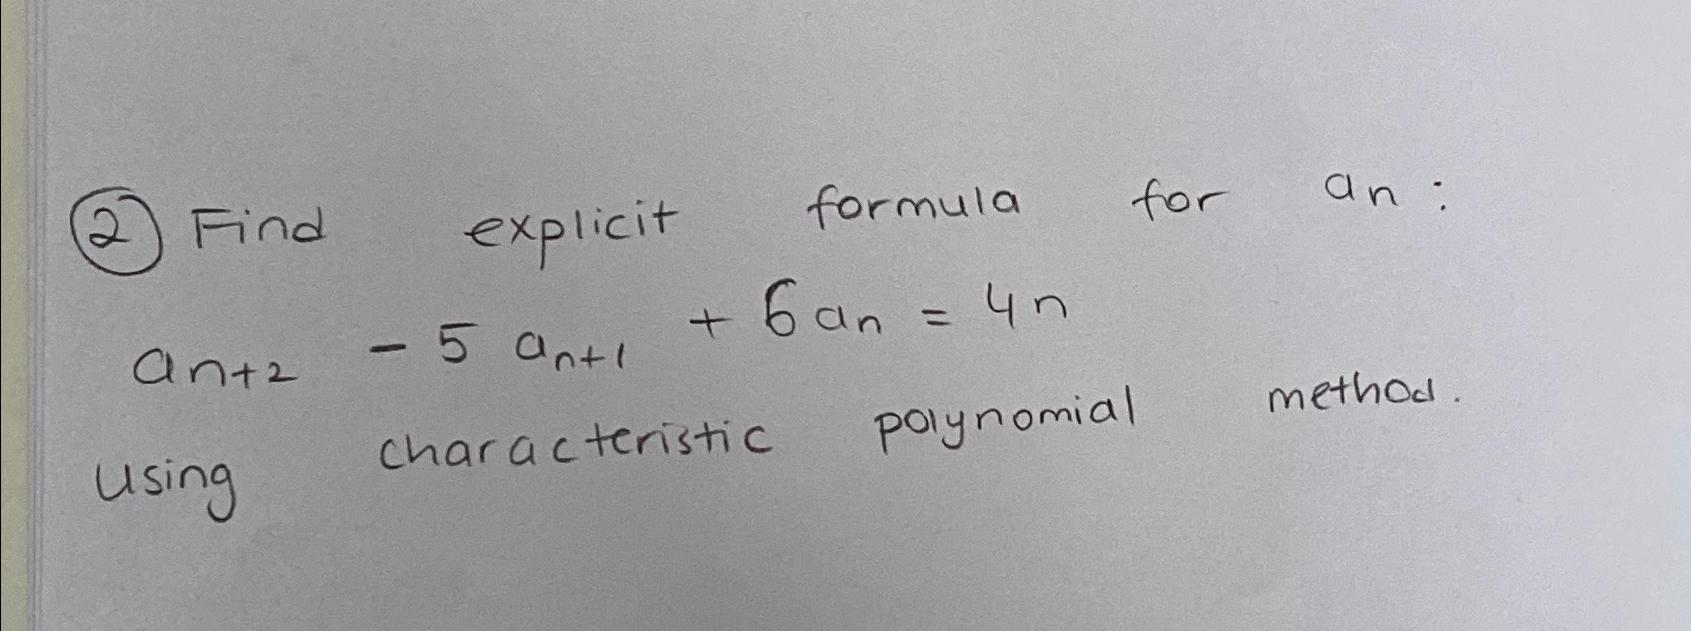 ② Find explicit formula for an :
an+2 - 5 an+1 + 6 an = 4n
Using characteristic polynomial method.